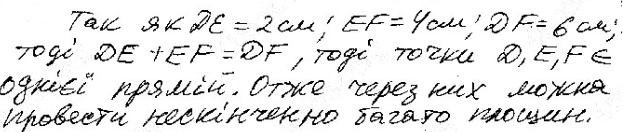 Так як DE = 2 см; EF = 4 см; DF = 6 см;
тоді DE + EF = DF, тоді точки D, E, F ∈
однієї прямій. Отже через них можна
провести нескінченно багато площин.